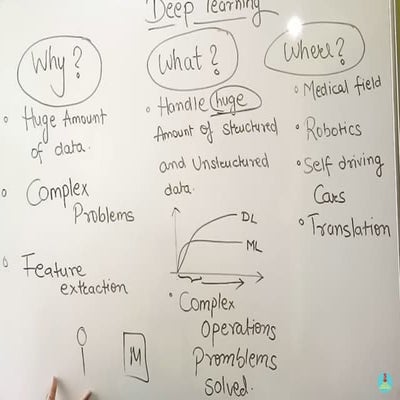 Deep learning
Why?
Huge Amount
of data.
Complex
Problems
Feature
extraction
M
What?
Handle huge
Amount of structured
and Unstructured
data.
DL
ML
Complex
Operations
Promblems
solved.
Where?
Medical field
Robotics
Self driving
Cars
Translation